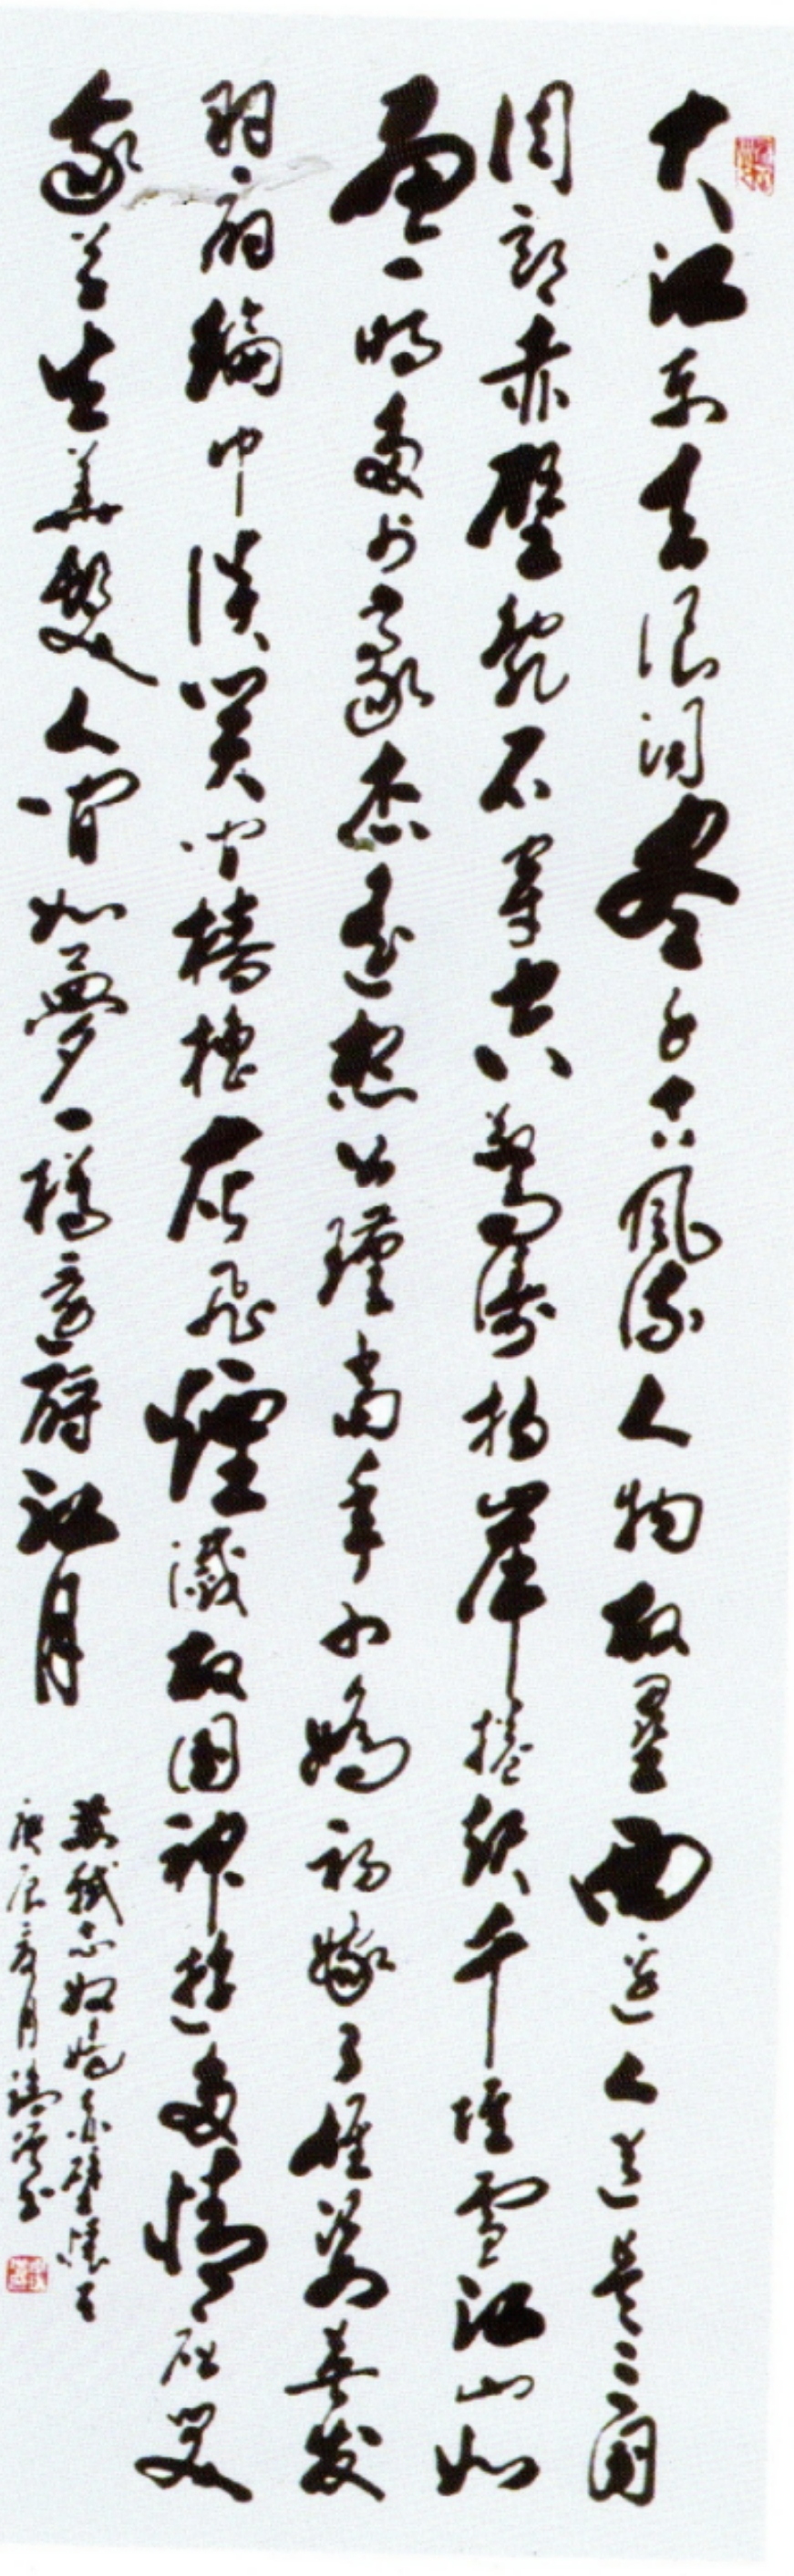 大江东去浪淘尽千古风流人物故垒西边人道是三国
周郎赤壁乱石穿空惊涛拍岸卷起千堆雪江山如
画一时多少豪杰遥想公瑾当年小娇初嫁了雄姿英发
羽扇纶巾谈笑间樯橹在飞烟灭故国神游多情应笑
我早生华发人间如梦一樽还酹江月
苏轼念奴娇赤壁怀古
庚辰夏月